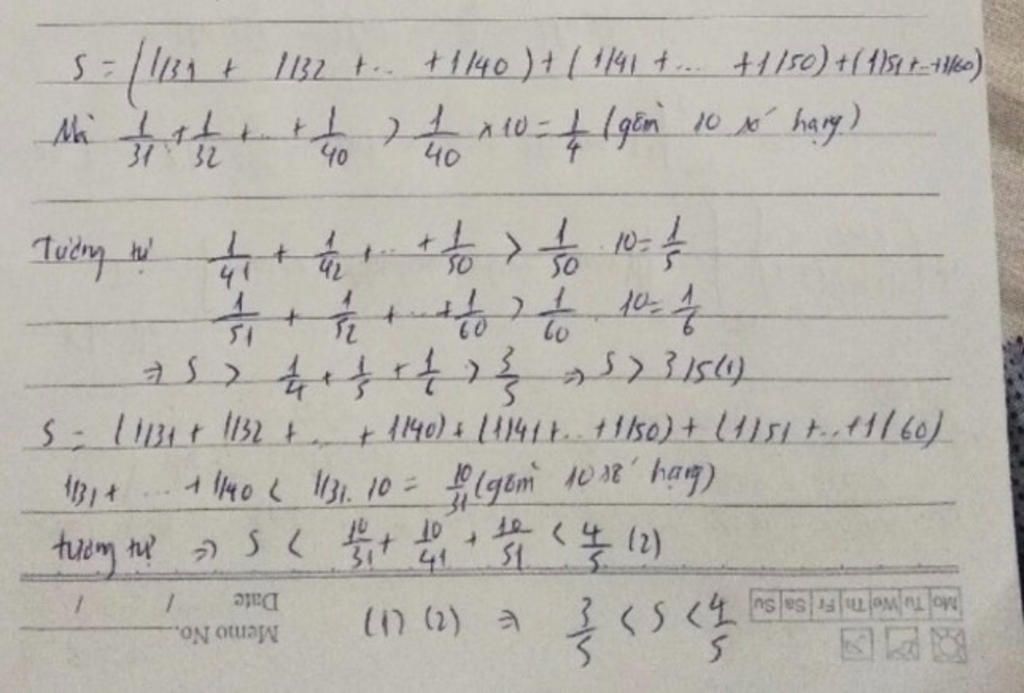 S = (1/31 + 1/32 + ... + 1/40) + (1/41 + ... + 1/50) + (1/51 + ... + 1/60)
Mà 1/31 + 1/32 + ... + 1/40 > 1/40 × 10 = 1/4 (gồm 10 số hạng)
Tương tự 1/41 + 1/42 + ... + 1/50 > 1/50 . 10 = 1/5
1/51 + 1/52 + ... + 1/60 > 1/60 . 10 = 1/6
⇒ S > 1/4 + 1/5 + 1/6 > 3/5 ⇒ S > 3/5 (1)
S = (1/31 + 1/32 + ... + 1/40) + (1/41 + ... + 1/50) + (1/51 + ... + 1/60)
1/31 + ... + 1/40 < 1/31 . 10 = 10/31 (gồm 10 số hạng)
tương tự ⇒ S < 10/31 + 10/41 + 10/51 < 4/5 (2)
(1) (2) ⇒ 3/5 < S < 4/5
Memo No.
Date / /
Mo Tu We Th Fr Sa Su